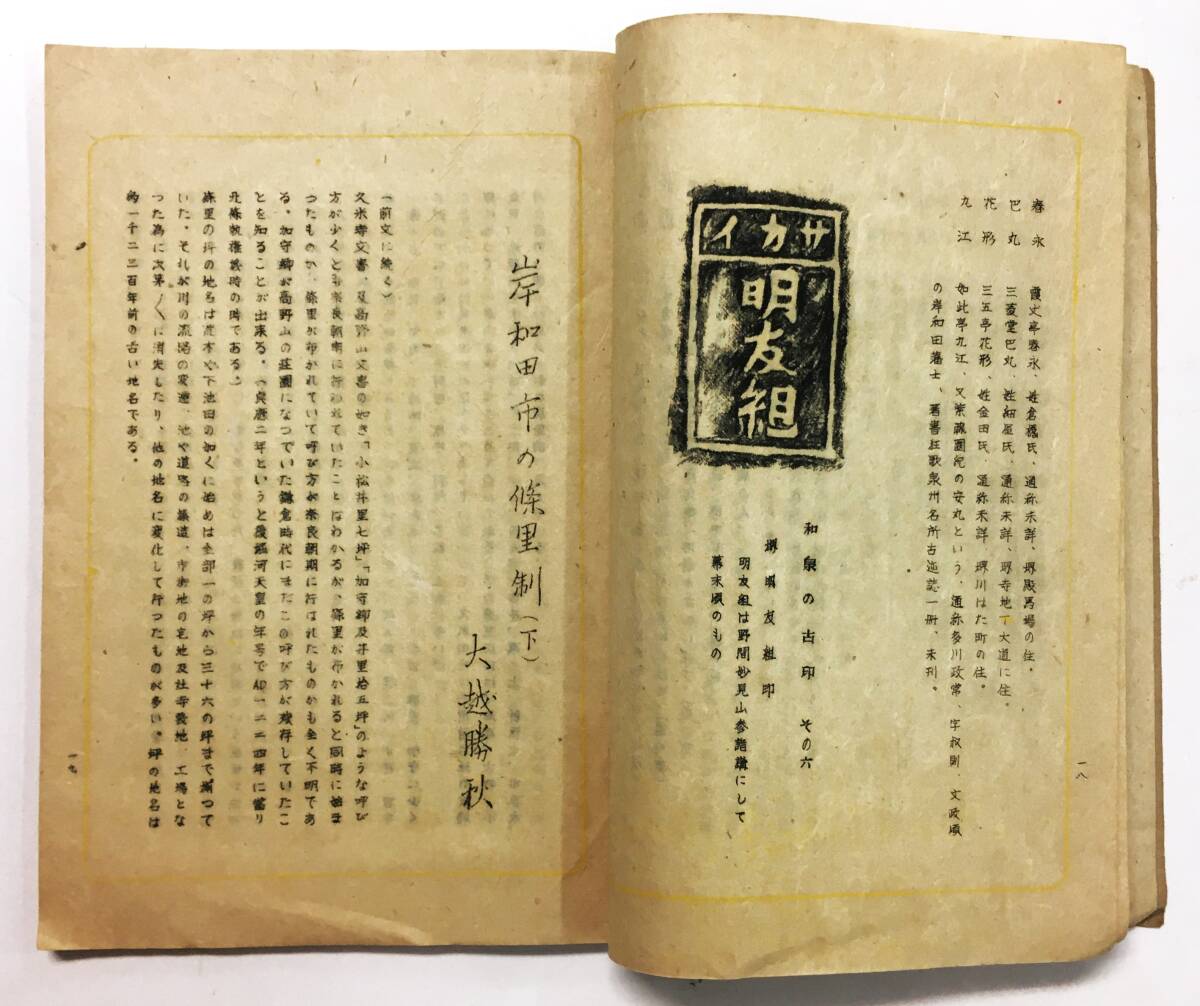 春永 霞丈亭春永、姓倉橋氏、通称未詳、堺殿馬場の住。
巴丸 三菱堂巴丸、姓細屋氏、通称未詳、堺寺地丁大道に住。
花形 三五亭花形、姓金田氏、通称未詳、堺川はた町の住。
九江 如此亭九江、又紫藤園 の安丸という、通称多川政常、字叔 、文政頃
の岸和田藩士、著書狂歌泉州名所古迹誌一冊、未刊。
サカイ
明友組
和泉の古印 その六
堺明友組印
明友組は野間妙見山参詣講にして
幕末頃のもの
一八
岸和田市の條里制(下)
大越勝秋
(前文に続く)
久米寺文書、及高野山文書の如き「小松井里七坪」「加守郷及井里拾五坪」のような呼び
方が少くとも奈良朝末に行われていたことはわかるが、條里が布かれると同時に始ま
つたものか、條里が布かれていて呼び方が奈良朝期に行はれたものかも全く不明であ
る。加守郷が高野山の荘園になつていた鎌倉時代にまだこの呼び方が残存していたこ
とを知ることが出来る。(貞應二年というと後堀河天皇の年号でAD一二二四年に當り
北條執権義時の時である。)
條里の坪の地名は 本や下池田の如くに始めは全部一の坪から三十六の坪まで揃つて
いた。それが川の流路の変遷、池や道路の築造、市街地の宅地及社寺敷地、工場とな
つた為に次第〱に消失したり、他の地名に変化して行つたものが多い。坪の地名は
約一千二三百年前の古い地名である。
一九